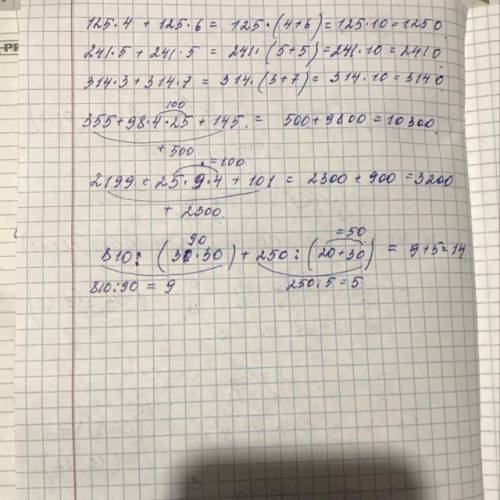 125·4 + 125·6 = 125·(4+6) = 125·10 = 1250
241·5 + 241·5 = 241·(5+5) = 241·10 = 2410
314·3 + 314·7 = 314·(3+7) = 314·10 = 3140
100
355+98·4·25 + 145 = 500 + 9800 = 10300
+ 500
= 100
2199 + 25·9·4 + 101 = 2300 + 900 = 3200
+ 2300
90 = 50
810 : (30·30) + 250 : (20+30) = 9+5=14
810:90 = 9 250:5 = 5